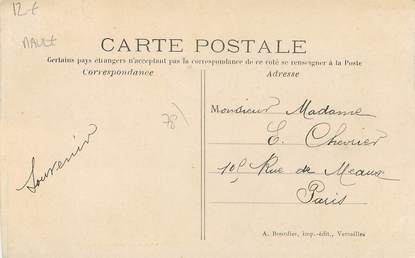 12€
MAULE
CARTE POSTALE
Certains pays étrangers n'acceptant pas la correspondance de ce coté se renseigner à la Poste
Correspondance
Adresse
78
Souvenir
Monsieur Madame
E. Chevrier
101 Rue de Meaux
Paris
A. Bourdier, imp.-édit., Versailles